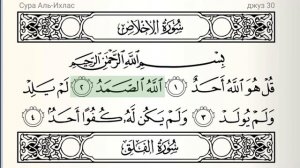 Сура Аль-Ихлас джуз 30
سُورَةُ الإِخْلَاصِ
بِسْمِ اللَّهِ الرَّحْمَٰنِ الرَّحِيمِ
قُلْ هُوَ اللَّهُ أَحَدٌ ١ اللَّهُ الصَّمَدُ ٢ لَمْ يَلِدْ
وَلَمْ يُولَدْ ٣ وَلَمْ يَكُن لَّهُ كُفُوًا أَحَدٌ ٤
سُورَةُ الْفَلَقِ